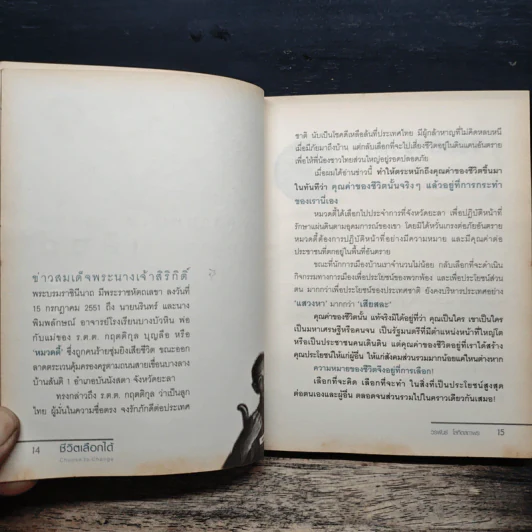 ข่าวสมเด็จพระนางเจ้าสิริกิติ์
พระบรมราชินีนาถ มีพระราชหัตถเลขา ลงวันที่
15 กรกฎาคม 2551 ถึง นายนรินทร์ และนาง
พิมพลักษณ์ อาจารย์โรงเรียนบางบัวหิน พ่อ
กับแม่ของ ร.ต.ต. กฤตติกุล บุญลือ หรือ
'หมวดตี้' ซึ่งถูกคนร้ายซุ่มยิงเสียชีวิต ขณะออก
ลาดตระเวนคุ้มครองครูตามถนนสายเขื่อนบางลาง
บ้านสันติ 1 อำเภอบันนังสตา จังหวัดยะลา
ทรงกล่าวถึง ร.ต.ต. กฤตติกุล ว่าเป็นลูก
ไทย ผู้มั่นในความซื่อตรง จงรักภักดีต่อประเทศ
14 ชีวิตเลือกได้
Choose to Change
ชาติ นับเป็นโชคดีเหลือล้นที่ประเทศไทย มีผู้กล้าหาญที่ไม่คิดหลบหนี
เมื่อมีภัยมาถึงบ้าน แต่กลับเลือกที่จะไปเสี่ยงชีวิตอยู่ในดินแดนอันตราย
เพื่อให้พี่น้องชาวไทยส่วนใหญ่อยู่รอดปลอดภัย
เมื่อผมได้อ่านข่าวนี้ ทำให้ตระหนักถึงคุณค่าของชีวิตขึ้นมา
ในทันทีว่า คุณค่าของชีวิตนั้นจริงๆ แล้วอยู่ที่การกระทำ
ของเรานี่เอง
หมวดตี้ได้เลือกไปประจำการที่จังหวัดยะลา เพื่อปฏิบัติหน้าที่
รักษาแผ่นดินตามอุดมการณ์ของเขา โดยมิได้หวั่นเกรงต่อภัยอันตราย
หมวดตี้ต้องการปฏิบัติหน้าที่อย่างมีความหมาย และมีคุณค่าต่อ
ประชาชนที่ตกอยู่ในพื้นที่อันตราย
ขณะที่นักการเมืองบ้านเราจำนวนไม่น้อย กลับเลือกที่จะดำเนิน
กิจกรรมทางการเมืองเพื่อประโยชน์ของพวกพ้อง และเพื่อประโยชน์ส่วน
ตน มากกว่าเพื่อประโยชน์ของประเทศชาติ ยังคงบริหารประเทศอย่าง
"แสวงหา" มากกว่า "เสียสละ"
คุณค่าของชีวิตนั้น แท้จริงมิได้อยู่ที่ว่า คุณเป็นใคร เขาเป็นใคร
เป็นมหาเศรษฐีหรือคนจน เป็นรัฐมนตรีที่มีตำแหน่งหน้าที่ใหญ่โต
หรือเป็นประชาชนคนเดินดิน แต่คุณค่าของชีวิตอยู่ที่เราได้สร้าง
คุณประโยชน์ให้แก่ผู้อื่น ให้แก่สังคมส่วนรวมมากน้อยแค่ไหนต่างหาก
ความหมายของชีวิตจึงอยู่ที่การเลือก!
เลือกที่จะคิด เลือกที่จะทำ ในสิ่งที่เป็นประโยชน์สูงสุด
ต่อตนเองและผู้อื่น ตลอดจนส่วนรวมไปในคราวเดียวกันเสมอ!
15